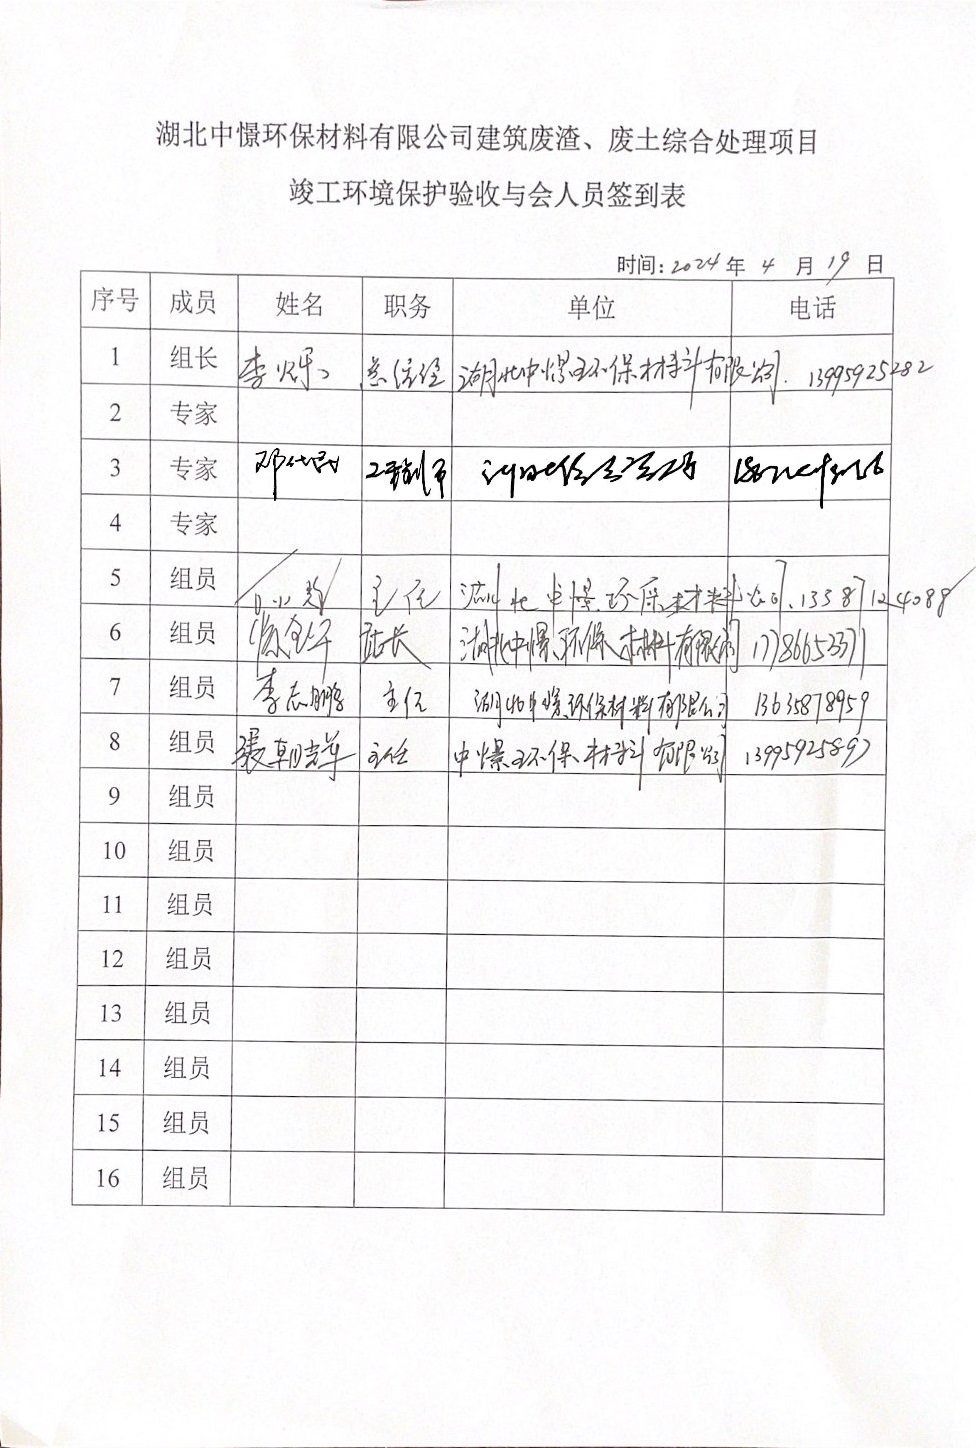 湖北中憬环保材料有限公司建筑废渣、废土综合处理项目
竣工环境保护验收与会人员签到表
时间:2024年 4 月 19 日
序号 成员 姓名 职务 单位 电话
1 组长 李 总经理 湖北中憬环保材料有限公司. 13995925282
2 专家
3 专家 邓
4 专家
5 组员 主任 湖北中憬环保材料公司. 13387124088
6 组员 站长 湖北中憬环保材料有限公司 17786652371
7 组员 李志鹏 主任 湖北中憬环保材料有限公司 13635878959
8 组员 張朝 主任 中憬环保材料有限公司 13995925897
9 组员
10 组员
11 组员
12 组员
13 组员
14 组员
15 组员
16 组员